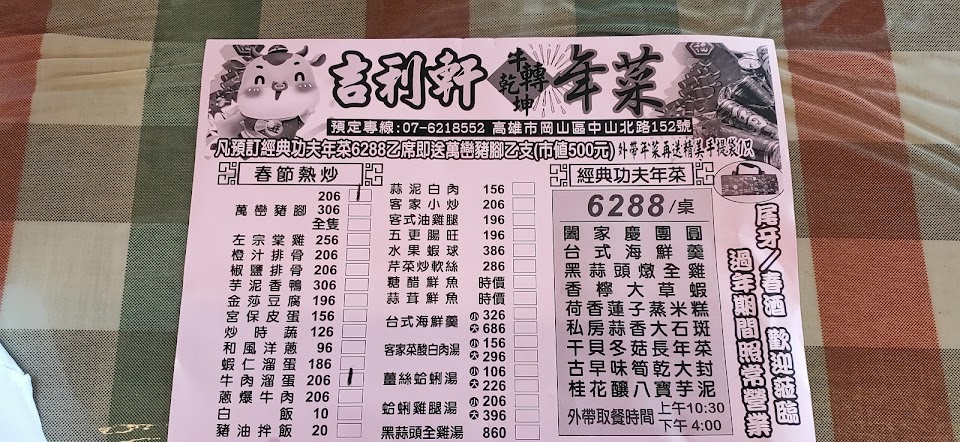 吉利軒 牛轉乾坤 年菜
預定專線:07-6218552 高雄市岡山區中山北路152號
凡預訂經典功夫年菜6288乙席即送萬巒豬腳乙支(市值500元)外帶年菜再送精美手提袋1只
春節熱炒
萬巒豬腳 206
306
全隻
左宗棠雞 256
橙汁排骨 206
椒鹽排骨 206
芋泥香鴨 306
金莎豆腐 196
宮保皮蛋 156
炒時蔬 126
和風洋蔥 96
蝦仁溜蛋 186
牛肉溜蛋 206
蔥爆牛肉 206
白飯 10
豬油拌飯 20
蒜泥白肉 156
客家小炒 206
客式油雞腿 196
五更腸旺 196
水果蝦球 386
芹菜炒軟絲 286
糖醋鮮魚 時價
蒜茸鮮魚 時價
台式海鮮羹 小326
大686
客家菜酸白肉湯 小156
大296
薑絲蛤蜊湯 小106
大226
蛤蜊雞腿湯 小206
大396
黑蒜頭全雞湯 860
經典功夫年菜
6288/桌
闔家慶團圓
台式海鮮羹
黑蒜頭燉全雞
香檸大草蝦
荷香蓮子蒸米糕
私房蒜香大石斑
干貝冬菇長年菜
古早味筍乾大封
桂花釀八寶芋泥
外帶取餐時間 上午10:30
下午 4:00
尾牙/春酒 歡迎蒞臨
過年期間照常營業